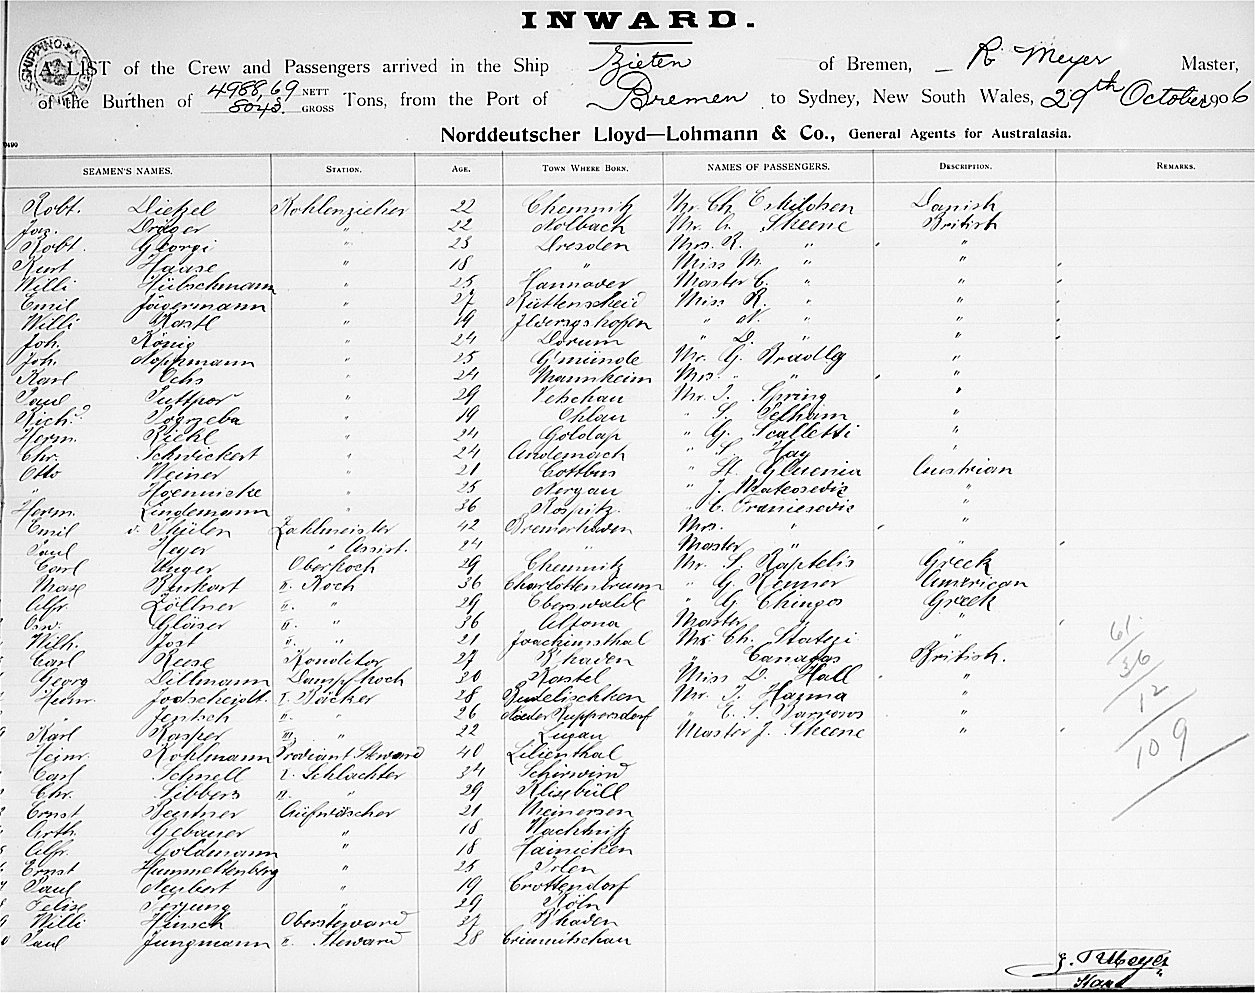 INWARD.
A LIST of the Crew and Passengers arrived in the Ship Zieten of Bremen, R. Meyer Master,
of the Burthen of 4988,69 NETT 8043. GROSS Tons, from the Port of Bremen to Sydney, New South Wales, 29th October 1906
Norddeutscher Lloyd—Lohmann & Co., General Agents for Australasia.
SEAMEN'S NAMES. STATION. AGE. TOWN WHERE BORN. NAMES OF PASSENGERS. DESCRIPTION. REMARKS.
Robt. Dietzel Kohlenzieher 22 Chemnitz Mr. Ch. Eskildsen Danish
Dräger " 22 Mr. Skeene British
Robt. Georgi " 23 Dresden Mrs. R. " "
Kurt Haase " 18 " Miss M. " "
Willi Hübschmann " 25 Hannover Master C. " "
Emil Jägermann " 27 Rüttenscheid Miss R. " "
Willi Kastl " 19 Ilversgehofen " N. " "
Joh. König " 24 Dorum " D. " "
Joh. Noppmann " 25 Gmünde Mr. G. Bradley "
Karl Ochs " 24 Mannheim Mrs. " " "
Paul Puttpor " 29 Vetschau Mr. J. Spring "
Rich. Pogrzeba " 19 Ohlau " S. Pelham "
Herm. Riehl " 24 Goldap " G. Scalletti "
Chr. Schwickert " 24 Andernach " S. Hay "
Otto Weiner " 21 Cottbus " St. Gluenia Austrian
" Hoennicke " 25 Nergau " J. Mateosevic "
Herm. Lindemann " 36 Rospitz " C. Franicsevic "
Emil v. Thülen Zahlmeister 42 Bremerhaven Mrs. " "
Paul Heyer " Assist. 24 " Master " "
Carl Unger Oberkoch 29 Chemnitz Mr. S. Raptelis Greek
Max Burkart II. Koch 36 Charlottenbrunn " G. Renner American
Alfr. Zöllner II. " 29 Eberswalde " G. Chingos Greek
Osw. Gläser II. " 36 Altona Master " "
Wilh. Jost II. " 21 Joachimsthal Mr. Ch. Statezi "
Carl Reese Konditor 27 B'haven " Canaras British.
Georg Dillmann Dampfkoch 30 Kastel Miss D. Hall "
Jodscheidt I. Bäcker 28 Budelischken Mr. J. Hanna "
Jentsch II. " 26 Nieder Ruppersdorf " E. S. Barrows "
Karl Kasper III. " 22 Lugau Master J. Skeene "
Heinr. Kohlmann Proviant Steward 40 Lilienthal
Carl Schnell I. Schlachter 34 Schirwind
Chr. Sibbers II. " 29 Klixbüll
Ernst Beutner Aufwäscher 21 Meinersen
Arth. Gebauer " 18 Wachtnitz
Alfr. Goldmann " 18 Hainichen
Ernst Hummeltenberg " 25 Irlen
Paul Neubert " 19 Crottendorf
Felix Terjung " 29 Köln
Willi Hinsch Obersteward 37 B'haven
Paul Jungmann II. Steward 28 Crimmitschau
61.
36
12
109